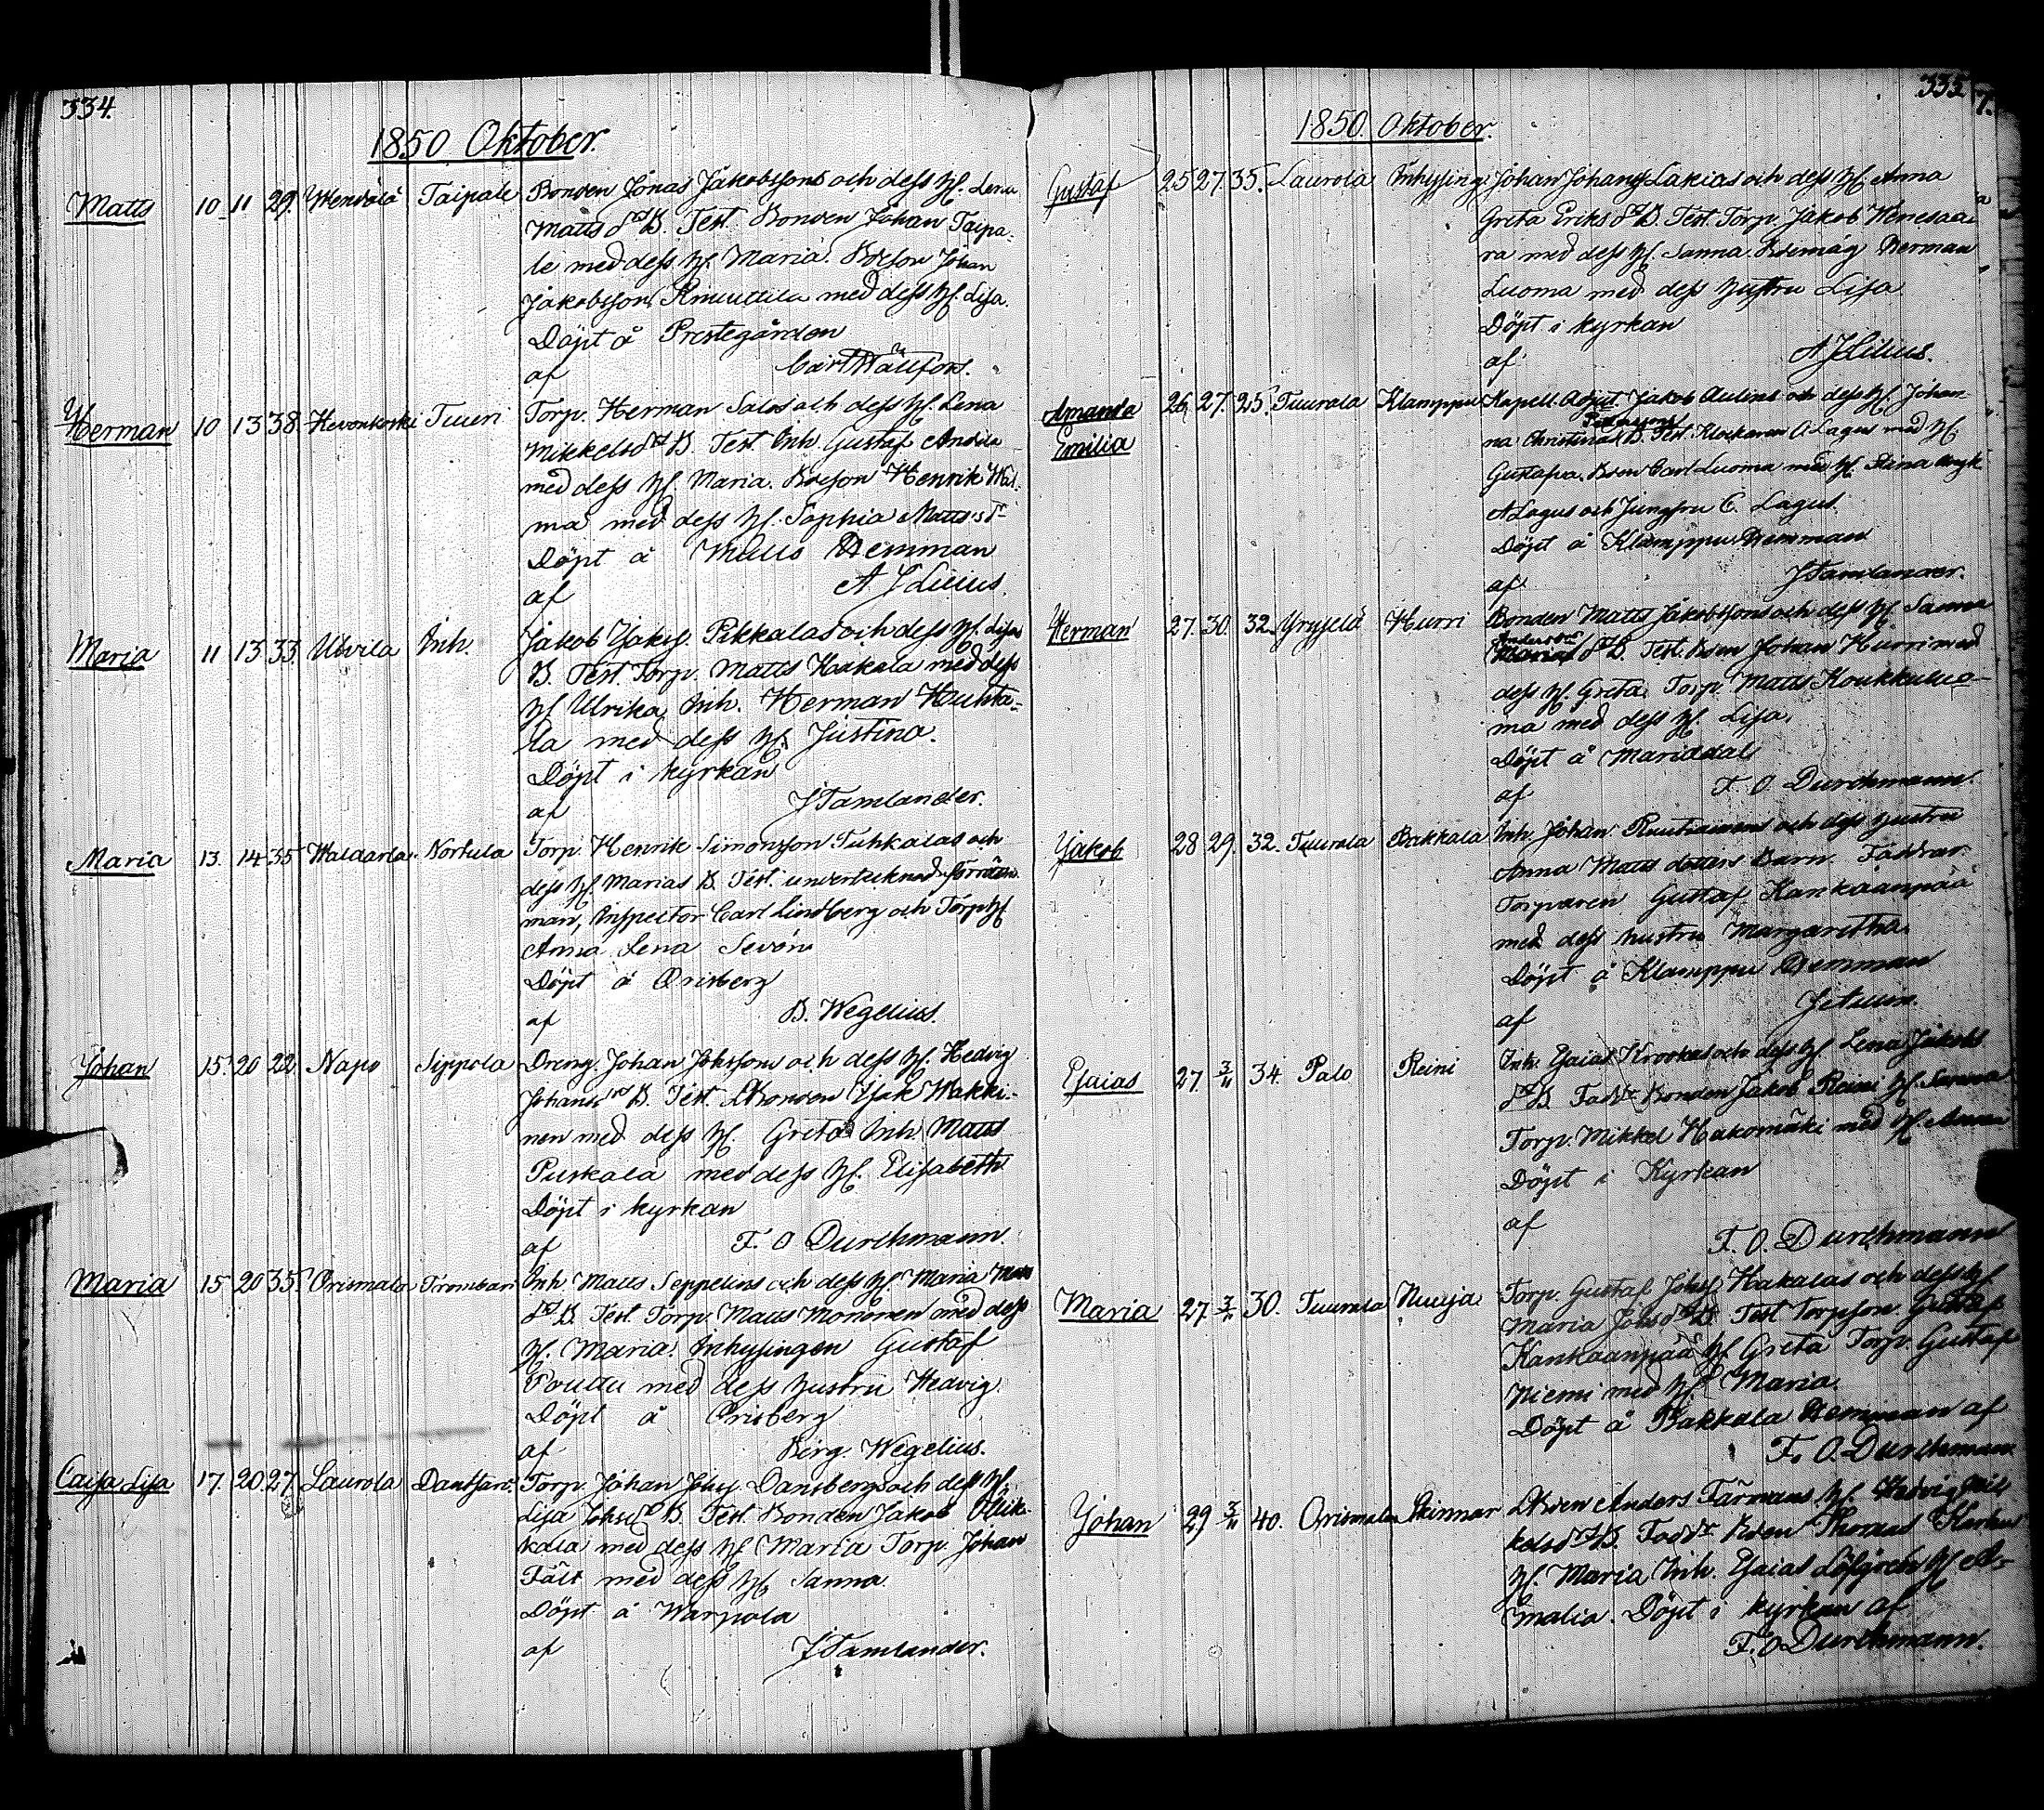 334.
1850 Oktober.
Matts 10 11 29. Wendälä Taipale Bonden Jonas Jakobssons och dess H. Lena
Matts dr B. Test. Bonden Johan Taipa-
le med dess H. Maria. Bdeson Johan
Jakobsson Knuuttila med dess H. Lisa.
Döpt å Prestegården
af Carl Wällfors.
Herman 10 13 38. Hevonkoski Tuuri Torp. Herman Salos och dess H. Lena
Mikkelsdr B. Test. Inh. Gustaf Andila
med dess H. Maria. Bdeson Henrik
ma med dess H. Sophia Matts dr
Döpt å Matts Hemman
af A J Lilius.
Maria 11 13 33. Ulvila Inh. Jakob Jakss. Pikkalas och dess H. Lisas
B. Test. Torp. Matts Hakala med dess
H Ulrika, Inh. Herman Huhta-
la med dess H. Justina.
Döpt i kyrkan
af J Tamlander.
Maria 13. 14 35 Waldarla Nortula Torp. Henrik Simonsson Tuhkalas och
dess H. Marias B. Test. undertecknad
man, Inspector Carl Lindberg och Torp H
Anna Lena Sevón
Döpt å Orisberg
af B. Wegelius.
Johan 15. 20 22 Napo Sippola Dreng. Johan Johssons och dess H. Hedvig
Johans dr B. Test. Bonden Isak Wakki-
nen med dess H. Greta Inh. Matts
Puskala med dess H. Elisabeth
Döpt i kyrkan
af F. O Durchmann.
Maria 15 20 35. Orismala Tromban Inh Matts Seppelins och dess H. Maria Matts
dr B. Test. Torp. Matts Mononen med dess
H. Maria. Inhysingen Gustaf
Pouttu med dess hustru Hedvig.
Döpt å Orisberg
af Birg. Wegelius.
Caisa Lisa 17. 20 27 Laurola Dantsar. Torp. Johan Johss. Dansbergs och dess H.
Lisa Johsdr B. Test. Bonden Jakob Ollik-
kala med dess H Maria Torp. Johan
Fält med dess H. Sanna.
Döpt å Warpola
af J Tamlander.
335
7.
1850. Oktober.
Gustaf 25 27. 35. Laurola Inhysing. Johan Johanss Lakias och dess H. Anna
Greta Eriks dr B. Test. Torp. Jakob Wenesaa-
ra med dess H. Sanna. Bdemåg Herman
Luoma med dess hustru Lisa
Döpt i kyrkan
af A J Lilius.
Amanda Emilia 26 27. 25. Tuurala Klamppu Kapell. Adjut Jakob Aulins och dess H. Johan-
na Christinas B. Test. Klockaren O Lagus med H.
Gustafva. Bden Carl Luoma med H. Stina
A Lagus och Jungfru C. Lagus.
Döpt å Klamppu Hemman
af J Tamlander.
Herman 27. 30. 32. Yrjylä Hurri Bonden Matts Jakobssons och dess H Sanna
Anders dr B. Test. Bden Johan Hurri med
dess H. Greta. Torp. Matts Koukkuluo-
ma med dess H. Lisa.
Döpt å Mariedal
af F. O. Durchmann.
Jakob 28 29. 32. Tuurala Bakkala Inh. Johan Ruutiainens och dess hustru
Anna Matts dotters Barn. Faddrar
Torparen Gustaf Kankaanpää
med dess hustru Margaretha.
Döpt å Klamppu Hemman
af J Aulin.
Esaias 27. 3/11 34. Palo Reini Inh. Esaias Krookas och dess H. Lena Jakobs
dr B. Faddr Bonden Jakob Reini H. Sanna
Torp. Mikkel Hakomäki med H. Anna
Döpt i Kyrkan
af F. O. Durchmann
Maria 27 3/11 30. Tuurala Nuija Torp. Gustaf Johss Hakalas och dess H
Maria Johsdr B Test Torpson Gustaf
Kankaanpää H Greta Torp. Gustaf
Niemi med H Maria.
Döpt å Bakkala Hemman af
F. O. Durchmann
Johan 29 3/11 40. Orismala Skinnar Bden Anders Färmans H Hedvig Mik-
kelsdr B. Faddr Bden Thomas
H. Maria Inh. Esaias Löfgren H A-
malia. Döpt i kyrkan af
F. O Durchmann.